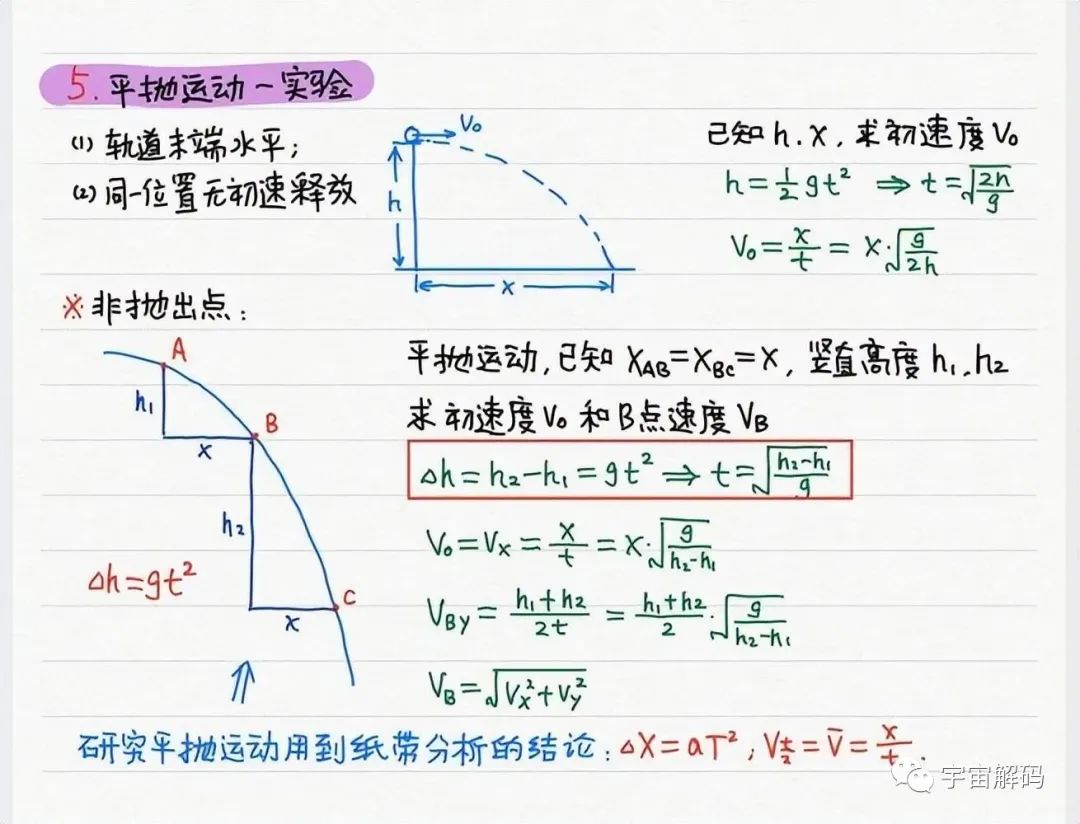 5.平抛运动-实验
(1) 轨道末端水平;
(2) 同一位置无初速释放
V₀
h
x
已知h.x,求初速度V₀
h=½gt² ⇒ t=√(2h/g)
V₀=x/t=x·√(g/2h)
※非抛出点:
A
h₁
x
B
h₂
x
C
Δh=gt²
平抛运动,已知X_AB=X_BC=X,竖直高度h₁.h₂
求初速度V₀和B点速度V_B
Δh=h₂-h₁=gt² ⇒ t=√((h₂-h₁)/g)
V₀=Vx=x/t=x·√(g/(h₂-h₁))
V_By=(h₁+h₂)/2t=(h₁+h₂)/2·√(g/(h₂-h₁))
V_B=√(Vx²+Vy²)
研究平抛运动用到纸带分析的结论:ΔX=aT²;V_(t/2)=V̄=x/t.
宇宙解码